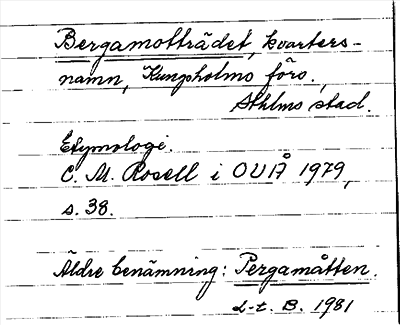 Bergamotträdet, kvarters-
namn, Kungsholms förs.,
Sthlms stad.
Etymologi.
C. M. Rosell i OUÅ 1979,
s. 38.
Äldre benämning: Pergamåtten.
L-t. B. 1981